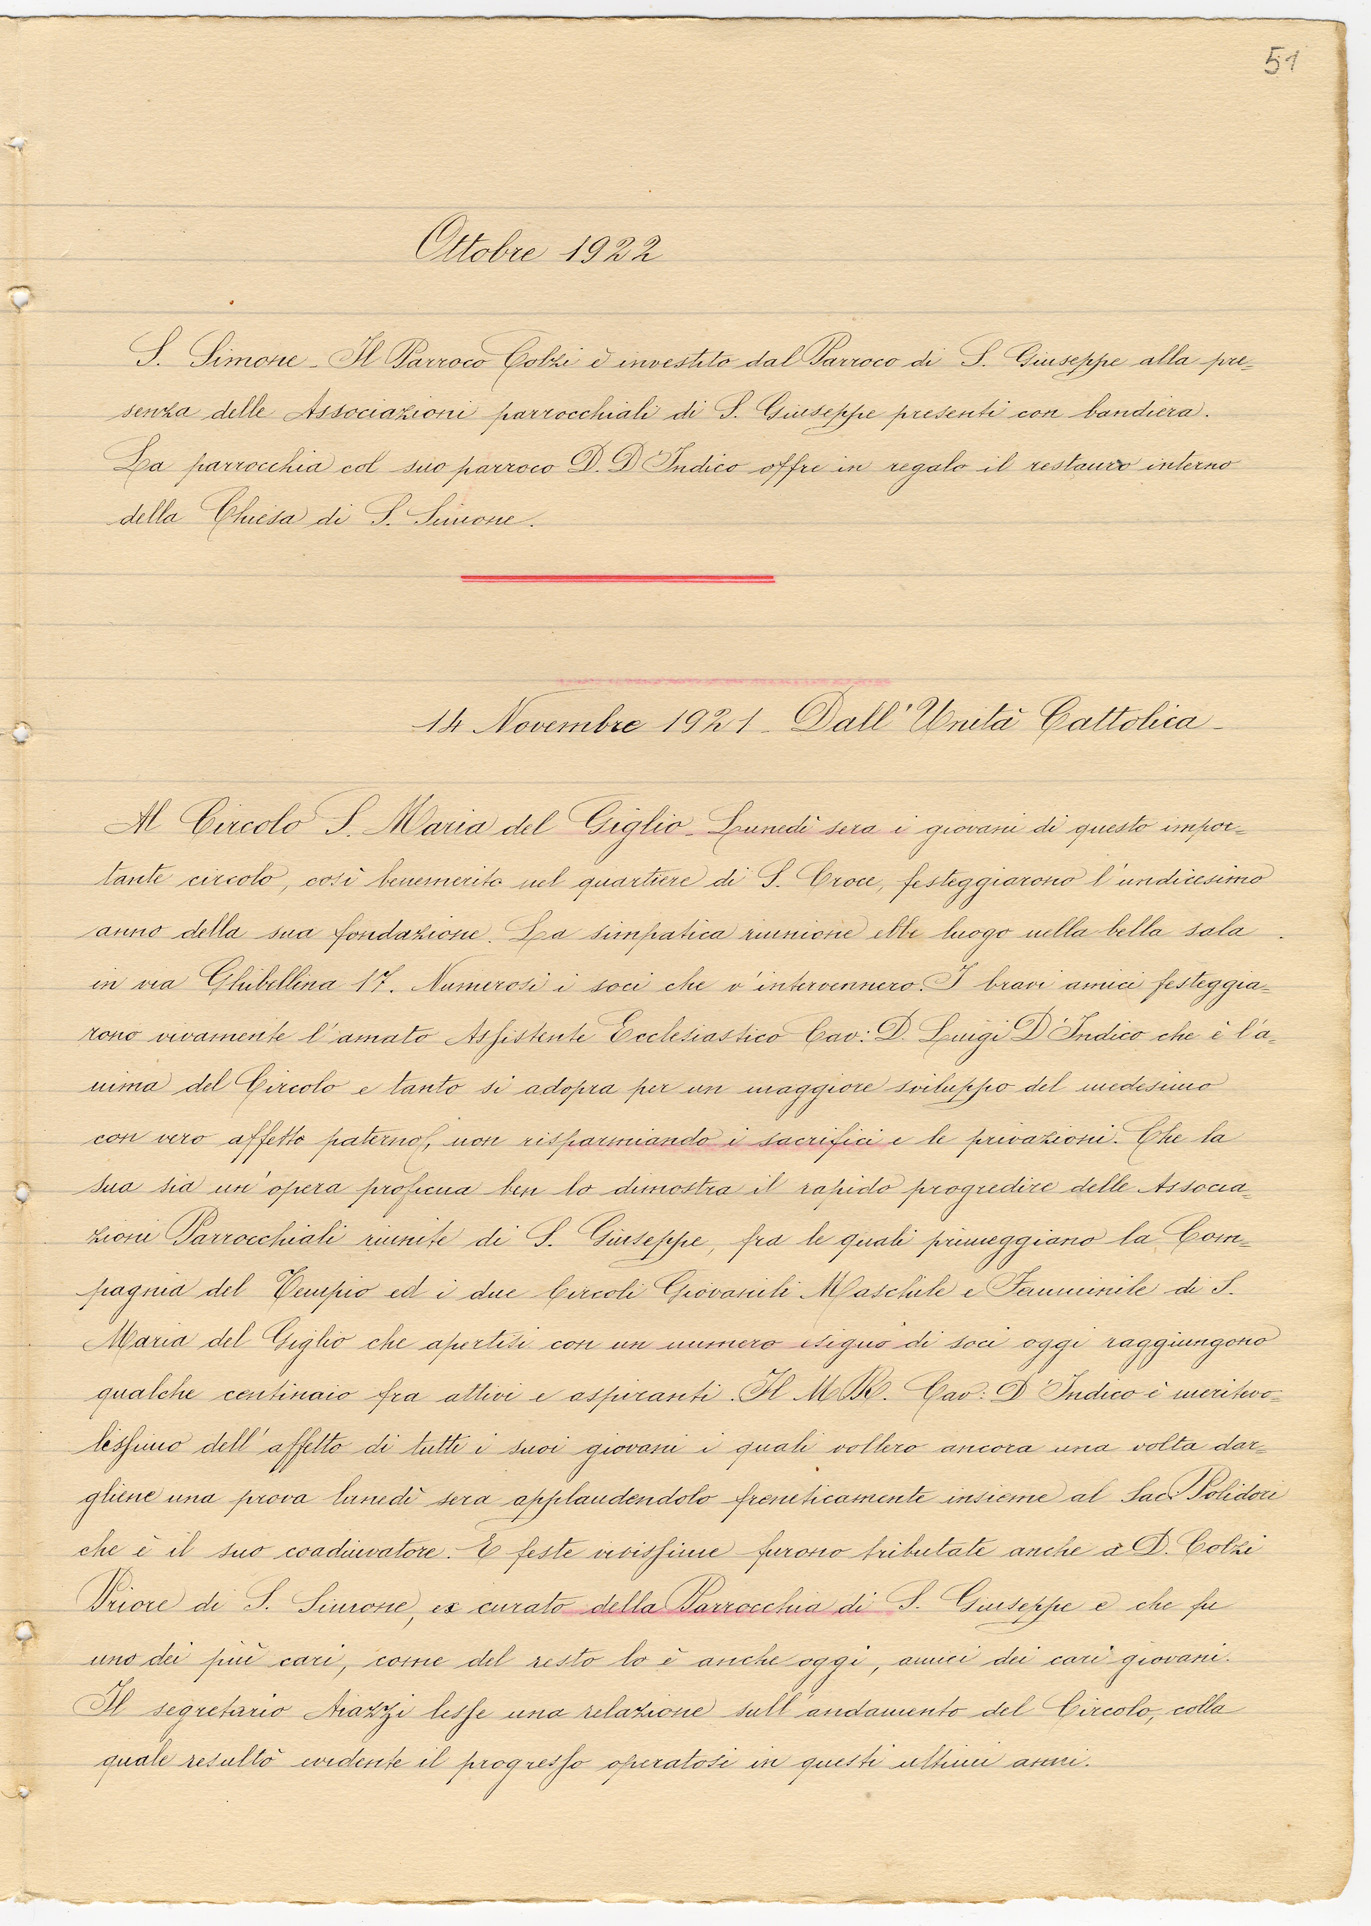 51
Ottobre 1922
S. Simone - Il Parroco Colzi è investito dal Parroco di S. Giuseppe alla pre=
senza delle Associazioni parrocchiali di S. Giuseppe presenti con bandiera.
La parrocchia col suo parroco D. D'Indico offre in regalo il restauro interno
della Chiesa di S. Simone.
14 Novembre 1921 - Dall'Unità Cattolica -
Al Circolo S. Maria del Giglio - Lunedì sera i giovani di questo impor=
tante circolo, così benemerito nel quartiere di S. Croce, festeggiarono l'undicesimo
anno della sua fondazione. La simpatica riunione ebbe luogo nella bella sala
in via Ghibellina 17. Numerosi i soci che v'intervennero. I bravi amici festeggia=
rono vivamente l'amato Assistente Ecclesiastico Cav: D. Luigi D'Indico che è l'a=
nima del Circolo e tanto si adopra per un maggiore sviluppo del medesimo
con vero affetto paterno, non risparmiando i sacrifici e le privazioni. Che la
sua sia un'opera proficua ben lo dimostra il rapido progredire delle Associa=
zioni Parrocchiali riunite di S. Giuseppe, fra le quali primeggiano la Com=
pagnia del Tempio ed i due Circoli Giovanili Maschile e Femminile di S.
Maria del Giglio che apertisi con un numero esiguo di soci oggi raggiungono
qualche centinaio fra attivi e aspiranti. Il M R. Cav: D'Indico è meritevo=
lissimo dell'affetto di tutti i suoi giovani i quali vollero ancora una volta dar=
gliene una prova lunedì sera applaudendolo freneticamente insieme al Sac. Polidori
che è il suo coadiuvatore. E feste vivissime furono tributate anche a D. Colzi
Priore di S. Simone, ex curato della Parrocchia di S. Giuseppe e che fu
uno dei più cari, come del resto lo è anche oggi, amici dei cari giovani.
Il segretario Aiazzi lesse una relazione sull'andamento del Circolo, colla
quale resultò evidente il progresso operatosi in questi ultimi anni.